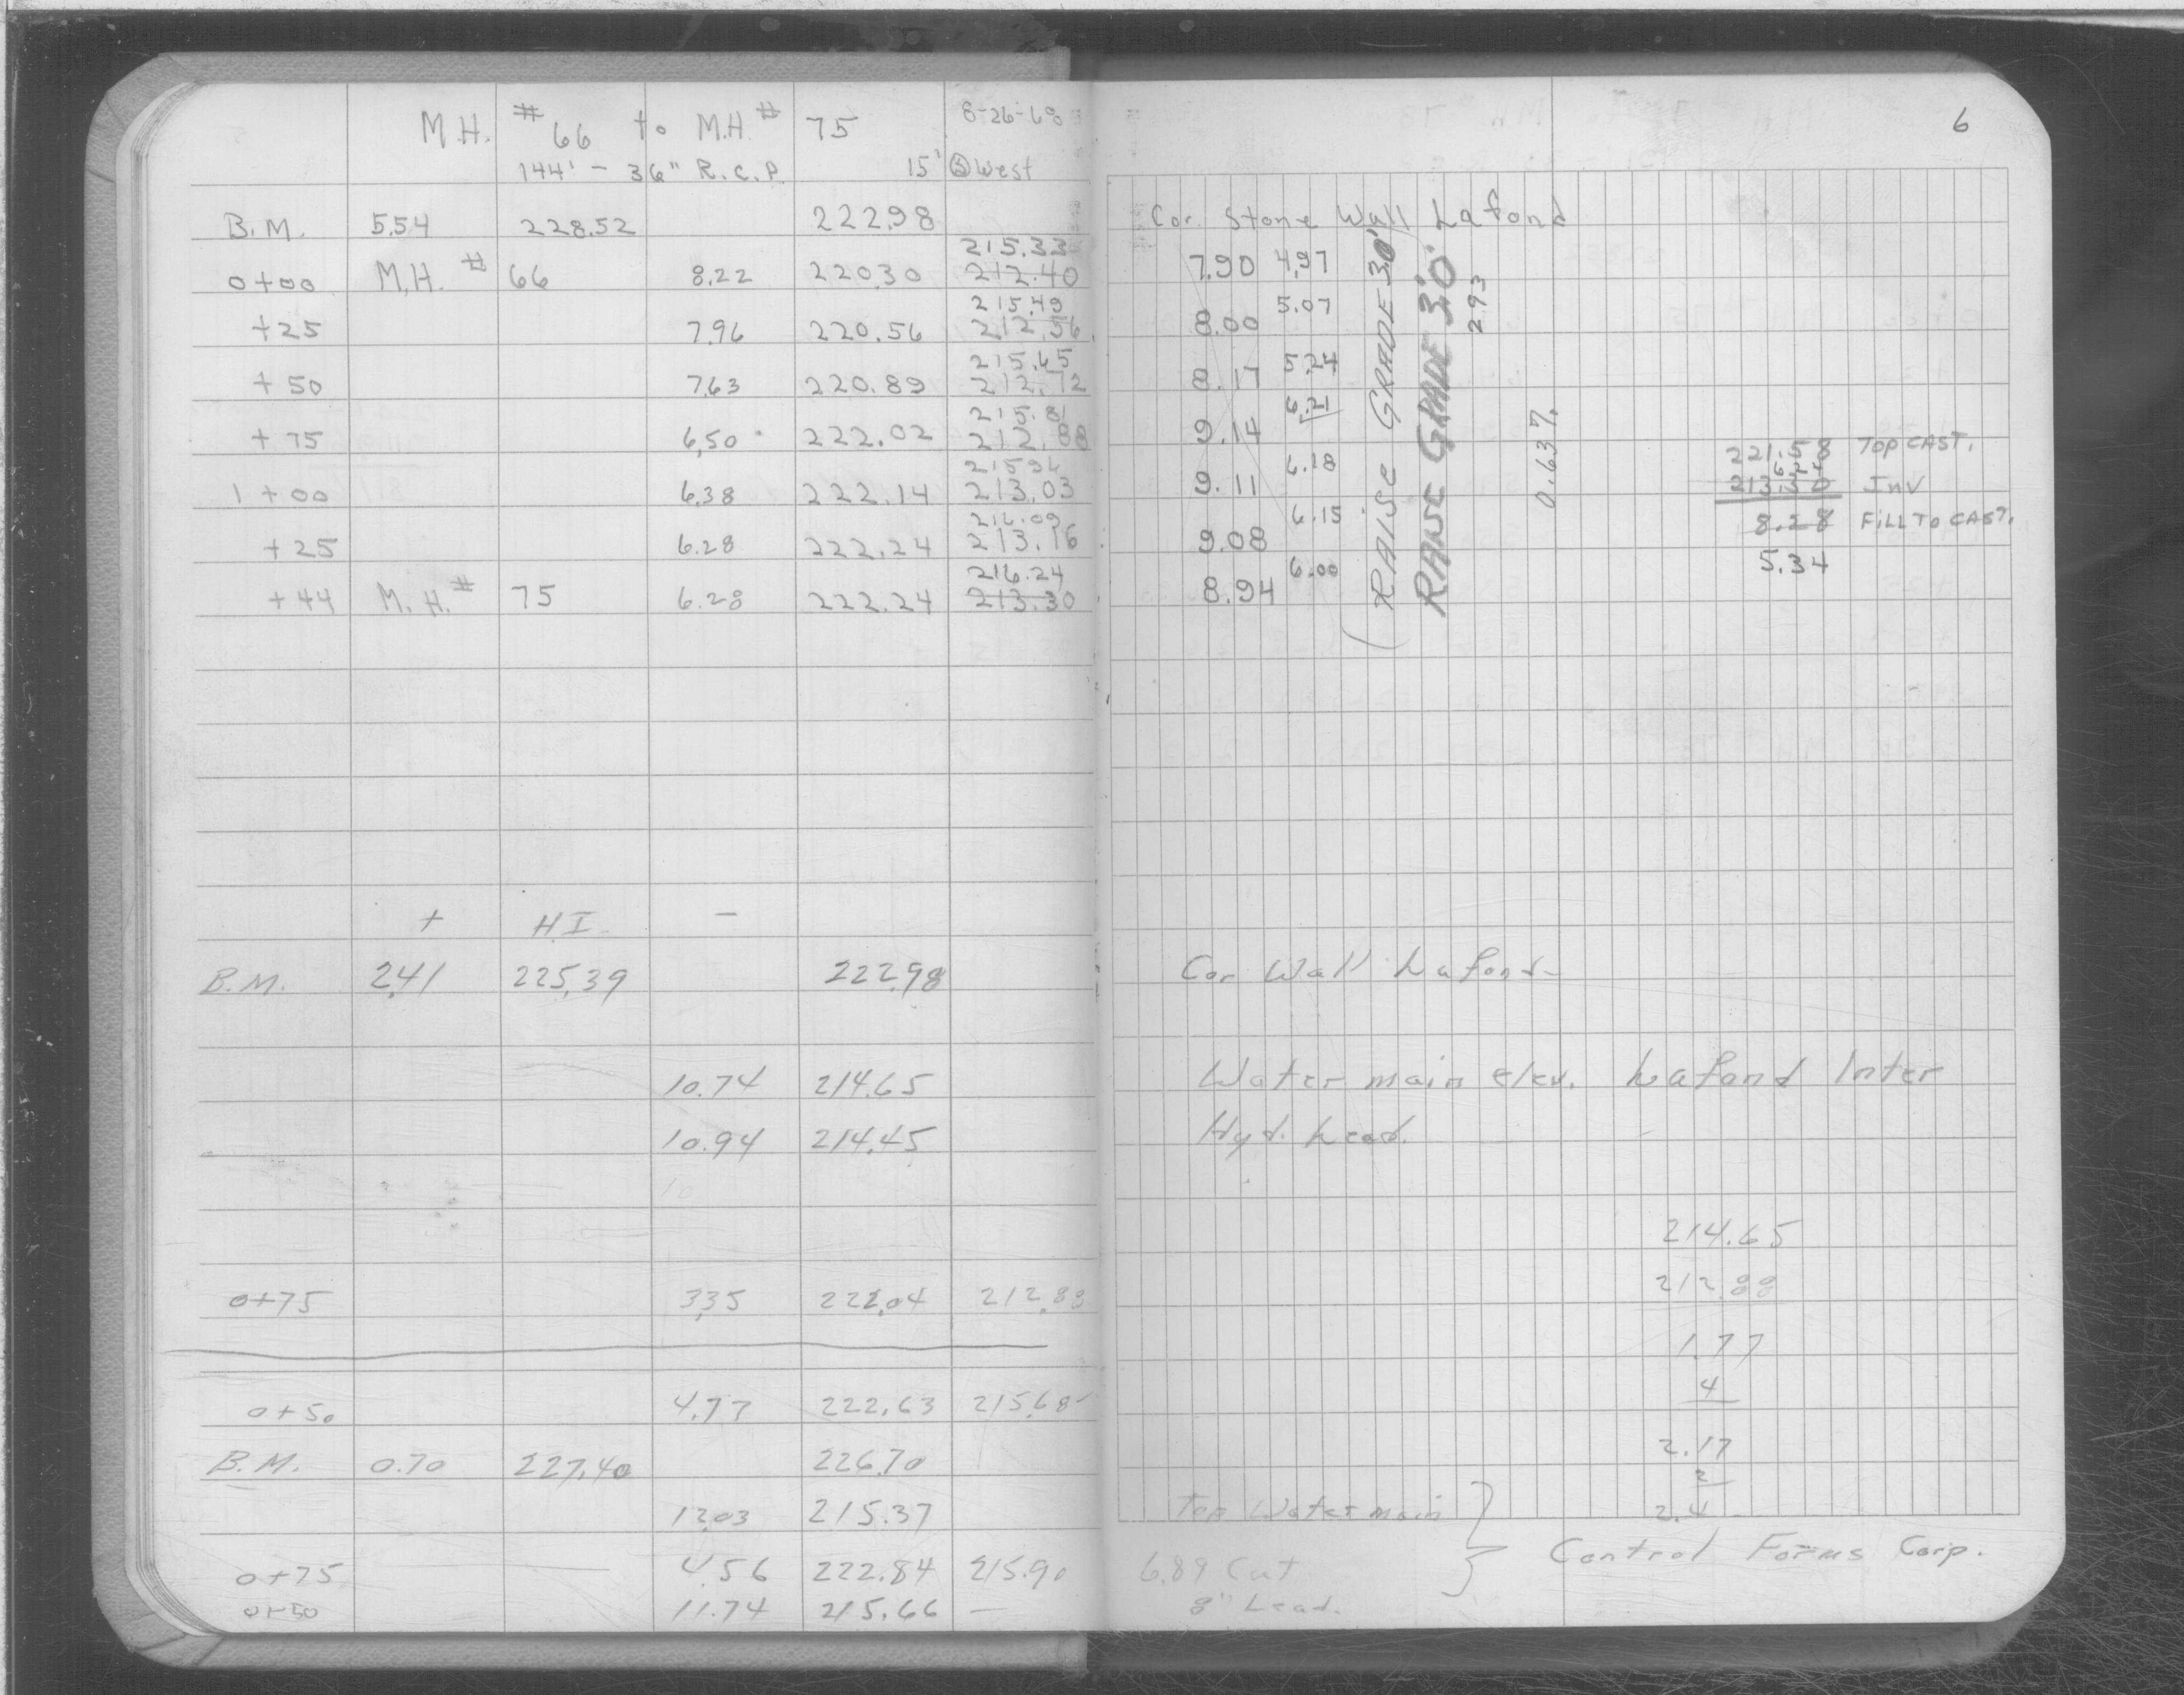 M.H. #66 to M.H. #75 8-26-68
144' - 36" R.C.P. 15' @ West
B.M. 5.54 228.52 222.98
215.33
0+00 M.H. # 66 8.22 220.30 212.40
215.49
+25 7.96 220.56 212.56
215.65
+50 7.63 220.89 212.72
215.81
+75 6.50 222.02 212.88
215.94
1+00 6.38 222.14 213.03
216.09
+25 6.28 222.24 213.16
216.24
+44 M.H. # 75 6.28 222.24 213.30
+ H.I. -
B.M. 2.41 225.39 222.98
10.74 214.65
10.94 214.45
10
0+75 3.35 222.04 212.88
0+50 4.77 222.63 215.68
B.M. 0.70 227.40 226.70
12.03 215.37
0+75 4.56 222.84 215.90
0+50 11.74 215.66 —
6
Cor. Stone Wall Lafond
7.90 4.97
8.00 5.07
8.17 5.24
9.14 6.21
9.11 6.18
9.08 6.15
8.94 6.00
(RAISE GRADE 3.0')
RAISE GRADE 3.0'
2.93
0.637.
221.58 TOP CAST.
213.30 INV
8.28 FILL TO CAST.
5.34
Cor Wall Lafond
Water main elev. Lafond Inter
Hyd. Lead.
214.65
212.88
1.77
4
2.17
2
2.4
Top Water main
6.89 Cut
8" Lead.
Control Forms Corp.